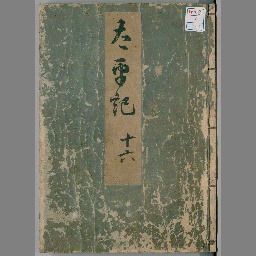 太平記
十六